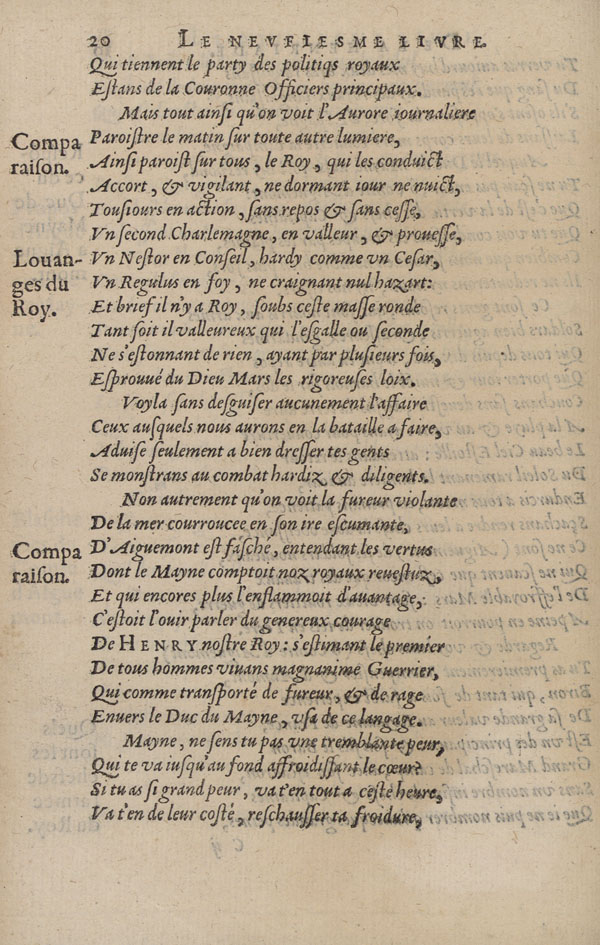 20 LE NEVFIESME LIVRE.
Qui tiennent le party des politiqs royaux
Eſtans de la Couronne Officiers principaux.
Mais tout ainſi qu'on voit l'Aurore iournaliere
Compa
raiſon.
Paroiſtre le matin ſur toute autre lumiere,
Ainſi paroiſt ſur tous, le Roy, qui les conduict
Accort, & vigilant, ne dormant iour ne nuict,
Touſiours en action, ſans repos & ſans ceſſe,
Vn ſecond Charlemagne, en valleur, & proueſſe,
Louan-
ges du
Roy.
Vn Neſtor en Conſeil, hardy comme vn Ceſar,
Vn Regulus en foy, ne craignant nul hazart:
Et brief il n'y a Roy, ſoubs ceſte maſſe ronde
Tant ſoit il valleureux qui l'eſgalle ou ſeconde
Ne s'eſtonnant de rien, ayant par pluſieurs fois,
Eſprouué du Dieu Mars les rigoreuſes loix.
Voyla ſans deſguiſer aucunement l'affaire
Ceux auſquels nous aurons en la bataille a faire,
Aduiſe ſeulement a bien dreſſer tes gents
Se monſtrans au combat hardiz & diligents.
Non autrement qu'on voit la fureur violante
De la mer courroucee en ſon ire eſcumante,
Compa
raiſon.
D'Aiguemont eſt faſché, entendant les vertus
Dont le Mayne comptoit noz royaux reueſtuz,
Et qui encores plus l'enflammoit d'auantage,
C'eſtoit l'ouir parler du genereux courage
De HENRY noſtre Roy: s'eſtimant le premier
De tous hommes viuans magnanime Guerrier,
Qui comme tranſporté de fureur, & de rage
Enuers le Duc du Mayne, vſa de ce langage.
Mayne, ne ſens tu pas vne tremblante peur,
Qui te va iuſqu'au fond affroidiſſant le cœur?
Si tu as ſi grand peur, va t'en tout a ceſte heure,
Va t'en de leur coſté, reſchauffer ta froidure,